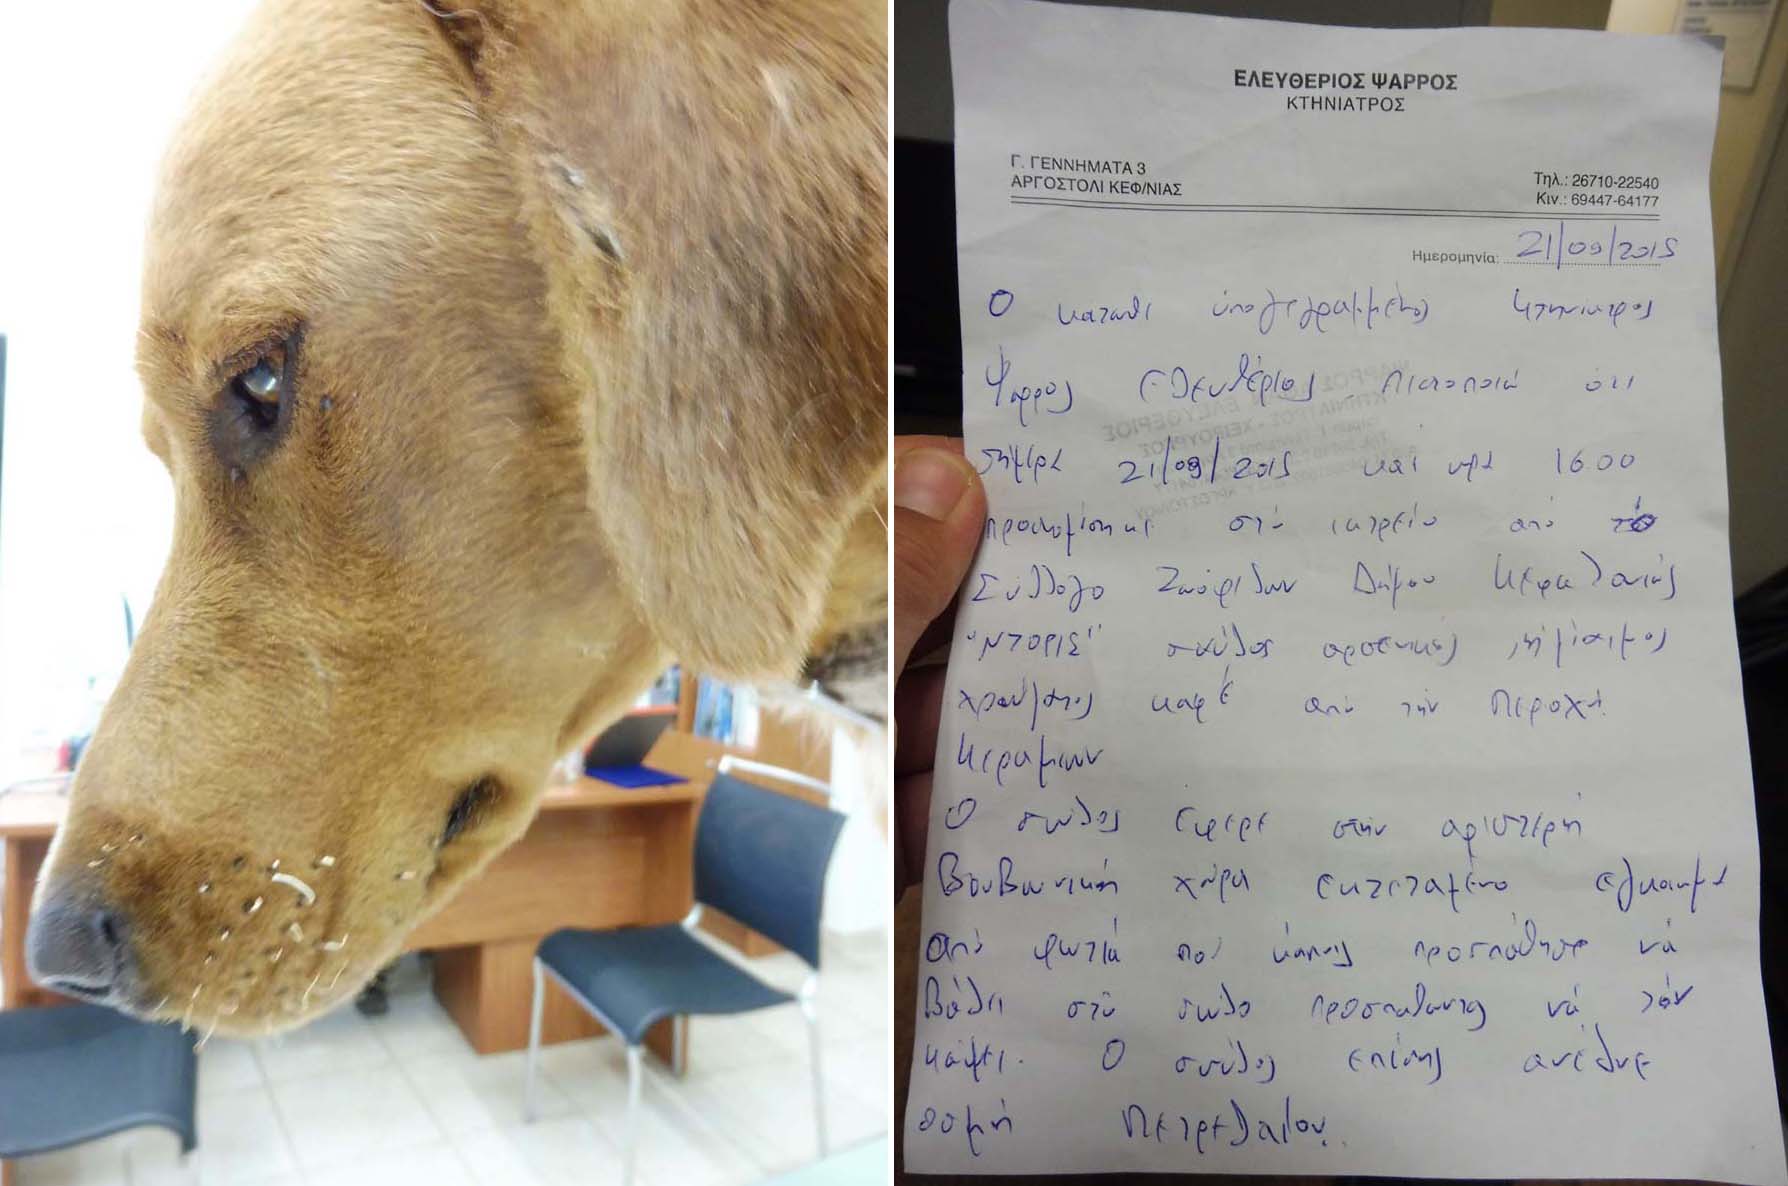 ΕΛΕΥΘΕΡΙΟΣ ΨΑΡΡΟΣ
ΚΤΗΝΙΑΤΡΟΣ
Γ. ΓΕΝΝΗΜΑΤΑ 3
ΑΡΓΟΣΤΟΛΙ ΚΕΦ/ΝΙΑΣ
Τηλ.: 26710-22540
Κιν.: 69447-64177
Ημερομηνία: 21/09/2015
Ο κατωθι υπογεγραμμένος κτηνιατρος
Ψαρρος Ελευθέριος πιστοποιώ ότι
σήμερα 21/09/2015 και ωρα 16 00
προσκομίστηκε στο ιατρείο από το
Σύλλογο Ζωόφιλων Δήμου Κεφαλονιάς
"ΝΤΟΡΙΣ" σκύλος αρσενικός ημίαιμος
χρώματος καφέ από την περιοχή
Κεραμιων
Ο σκύλος έφερε στην αριστερή
Βουβωνική χώρα εκτεταμένο έγκαυμα
από φωτιά που κάποιος προσπάθησε νά
βάλει στο σκύλο προσπαθωντας νά τόν
κάψει. Ο σκύλος επίσης ανέδυε
οσμή πετρελαίου.